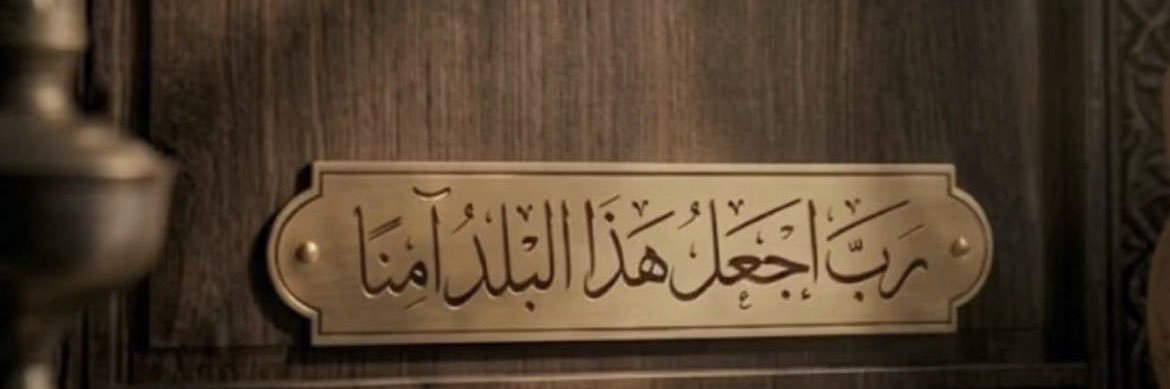 رَبَّ إجْعَلُ هَذَا البْلدُ آمِنًا